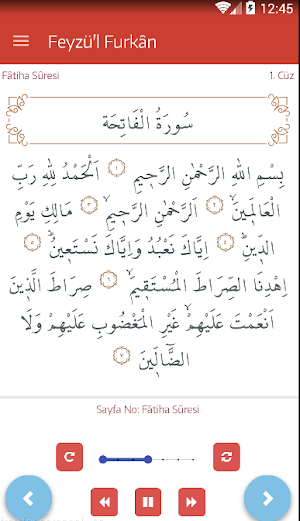 12:45
Feyzü'l Furkân
Fâtiha Sûresi 1. Cüz
سُورَةُ الْفَاتِحَة
بِسْمِ اللّٰهِ الرَّحْمٰنِ الرَّحٖيمِ ﴿١﴾ اَلْحَمْدُ لِلّٰهِ رَبِّ
الْعَالَمٖينَۙ ﴿٢﴾ اَلرَّحْمٰنِ الرَّحٖيمِۙ ﴿٣﴾ مَالِكِ يَوْمِ
الدّٖينِۜ ﴿٤﴾ اِيَّاكَ نَعْبُدُ وَاِيَّاكَ نَسْتَعٖينُۜ ﴿٥﴾
اِهْدِنَا الصِّرَاطَ الْمُسْتَقٖيمَۙ ﴿٦﴾ صِرَاطَ الَّذٖينَ
اَنْعَمْتَ عَلَيْهِمْۙ غَيْرِ الْمَغْضُوبِ عَلَيْهِمْ وَلَا
الضَّٓالّٖينَ ﴿٧﴾
Sayfa No: Fâtiha Sûresi